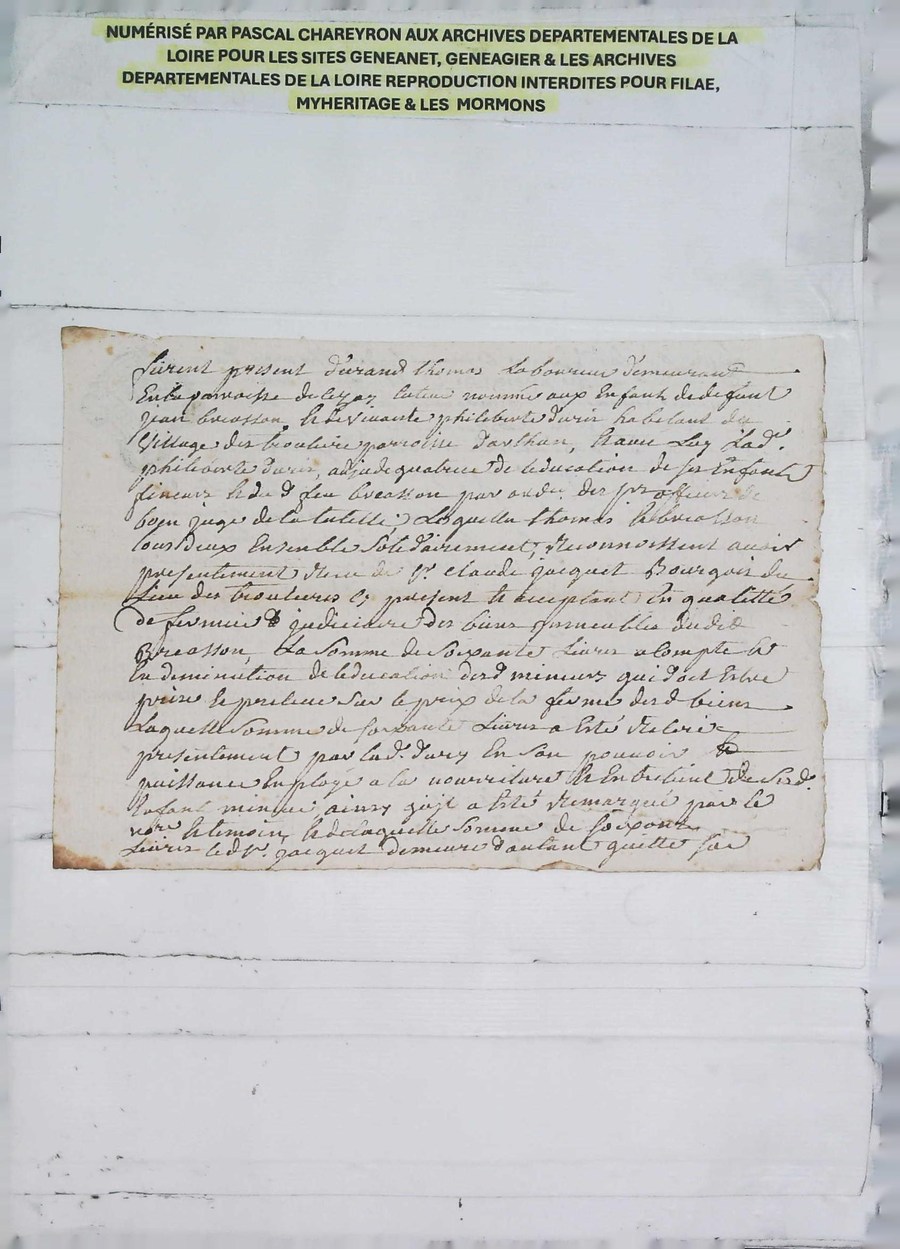 NUMÉRISÉ PAR PASCAL CHAREYRON AUX ARCHIVES DEPARTEMENTALES DE LA
LOIRE POUR LES SITES GENEANET, GENEAGIER & LES ARCHIVES
DEPARTEMENTALES DE LA LOIRE REPRODUCTION INTERDITES POUR FILAE,
MYHERITAGE & LES MORMONS
furent present durand thomas laboureur demeurant
En la parroisse de tuteur nommé aux Enfants de defunt
jean breasson & de vivante philiberte duris habitant du
village des parroisse &
philiberte duris, de leducation de ses Enfants
mineurs & du d feu breasson par des officiers de
juge de la tutelle, thomas & breasson
tous deux Ensemble solidairement, reconnoissent avoir
presentement receu de sr. claude jacquet Bourgois du
lieu des present & acceptant En qualitté
de fermier judiciaire des biens immeubles dudit
Breasson, La somme de soixante Livres a compte &
En deminution de leducation des d mineurs qui doit Estre
prise sur le prix de la ferme des d biens
Laquelle somme de soixante Livres a Esté retirée
presentement par lad. En son pouvoir &
puissance Employé a la nourriture & Entretient de sesd.
Enfant mineur ainsy quil a Esté remarqué par le
nore & temoins & de laquelle somme de soixante
Livres led sr. jacquet demeure dautant quitte sur